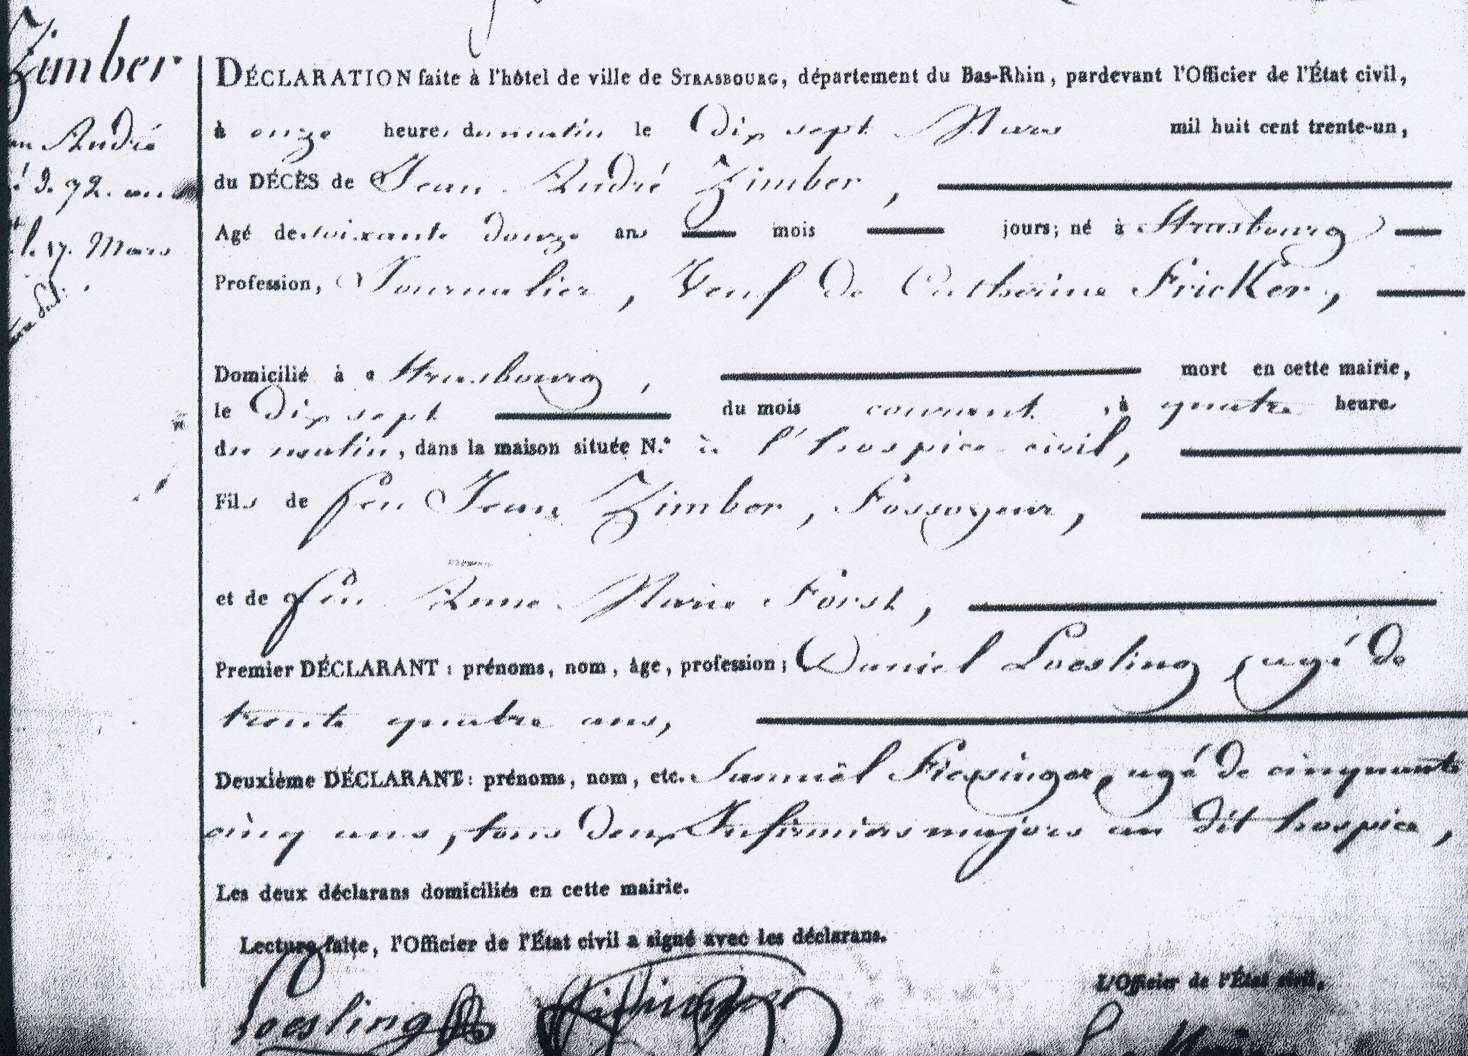 Zimber
André
72. ans
le 17. Mars
DÉCLARATION faite à l'hôtel de ville de STRASBOURG, département du Bas-Rhin, pardevant l'Officier de l'État civil,
à onze heures du matin le Dix sept Mars mil huit cent trente-un,
du DÉCÈS de Jean André Zimber,
Agé de soixante douze ans mois jours; né à Strasbourg
Profession, Journalier, Veuf de Catherine Fricker,
Domicilié à Strasbourg, mort en cette mairie,
le Dix sept du mois courant, à quatre heures
du matin, dans la maison située N.° à l'hospice civil,
Fils de feu Jean Zimber, Fossoyeur,
et de feu Anne Marie Forst,
Premier DÉCLARANT: prénoms, nom, âge, profession; Daniel Loesling agé de
trente quatre ans,
Deuxième DÉCLARANT: prénoms, nom, etc. Samuël Fiessinger, agé de cinquante
cinq ans, tous deux Infirmiers majors au dit hospice,
Les deux déclarans domiciliés en cette mairie.
Lecture faite, l'Officier de l'État civil a signé avec les déclarans.
L'Officier de l'État civil,
Loesling